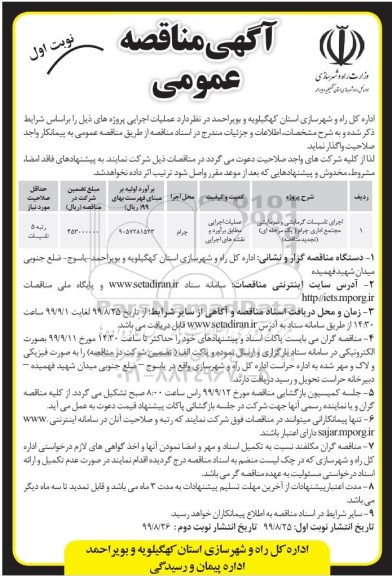 آگهی مناقصه
عمومی
نوبت اول
وزارت راه و شهرسازی
اداره کل راه و شهرسازی استان کهگیلویه و بویراحمد در نظر دارد عملیات اجرایی پروژه های ذیل را براساس شرایط
ذکر شده و به شرح مشخصات، اطلاعات و جزئیات مندرج در اسناد مناقصه از طریق مناقصه عمومی به پیمانکار واجد
صلاحیت واگذار نماید.
لذا از کلیه شرکت های واجد صلاحیت دعوت می گردد در مناقصات ذیل شرکت نمایند. به پیشنهادهای فاقد امضا،
مشروط، مخدوش و پیشنهادهایی که بعد از موعد مقرر واصل شود ترتیب اثر داده نخواهد شد.
ردیف شرح پروژه کمیت و کیفیت محل اجرا برآورد اولیه بر مبنای فهرست بهای ۹۹ (ریال) مبلغ تضمین شرکت در مناقصه (ریال) حداقل صلاحیت مورد نیاز
۱ اجرای تاسیسات گرمایشی و سرمایشی مجتمع اداری چرام (یک مرحله ای) (تجدید مناقصه) عملیات اجرایی مطابق برآورد و نقشه های اجرایی چرام ۹۰۵۷۲۸۱۵۴۳ ۴۵۳۰۰۰۰۰۰ رتبه ۵ تاسیسات
۱- دستگاه مناقصه گزار و نشانی: اداره کل راه و شهرسازی استان کهگیلویه و بویراحمد-یاسوج- ضلع جنوبی
میدان شهید فهمیده
۲- آدرس سایت اینترنتی مناقصات: سامانه ستاد www.setadiran.ir و پایگاه ملی مناقصات
http://iets.mporg.ir
۳- زمان و محل دریافت اسناد مناقصه و آگاهی از سایر شرایط: از تاریخ ۹۹/۸/۲۵ لغایت ۹۹/۹/۱ ساعت
۱۴:۳۰ از طریق سامانه ستاد به آدرس www.setadiran.ir قابل دریافت می باشد.
۴- مناقصه گران می بایست پاکات اسناد و پیشنهادهای خود را حداکثر تا ساعت ۱۴:۳۰ مورخ ۹۹/۹/۱۱ بصورت
الکترونیکی در سامانه ستاد بارگزاری و ارسال نموده و پاکت الف (تضمین شرکت در مناقصه) را به صورت فیزیکی
و لاک و مهر شده به اداره حراست اداره کل راه و شهرسازی واقع در یاسوج – ضلع جنوبی میدان شهید فهمیده –
دبیرخانه حراست تحویل و رسید دریافت دارند.
۵- جلسه کمیسیون بازگشایی مناقصه مورخ ۹۹/۹/۱۲ راس ساعت ۸:۰۰ صبح تشکیل می گردد. از کلیه مناقصه
گران و یا نماینده رسمی آنها جهت شرکت در جلسه بازگشائی پاکات پیشنهاد قیمت دعوت به عمل می آید.
۶- تنها پیمانکارانی میتوانند در مناقصات فوق شرکت نمایند که رتبه و صلاحیت آنان در سامانه اینترنتی www.
sajar.mporg.ir دارای اعتبار باشند.
۷- مناقصه گران مکلفند نسبت به تکمیل اسناد و مهر و امضا نمودن آنها و اخذ گواهی های لازم درخواستی اداره
کل راه و شهرسازی که در چک لیست منضم به اسناد مناقصه درج گردیده اقدام نمایند در صورت عدم تکمیل و ارائه
اسناد درخواستی مسئولیت به عهده مناقصه گر می باشد.
۸- مدت اعتبار پیشنهادات از آخرین مهلت تسلیم پیشنهادات به مدت ۳ ماه می باشد و قابل تمدید تا سه ماه دیگر
می باشد.
۹- سایر شرایط در اسناد مناقصه به اطلاع پیمانکاران خواهد رسید.
تاریخ انتشار نوبت اول: ۹۹/۸/۲۵ تاریخ انتشار نوبت دوم : ۹۹/۸/۲۶
اداره کل راه و شهرسازی استان کهگیلویه و بویراحمد
اداره پیمان و رسیدگی